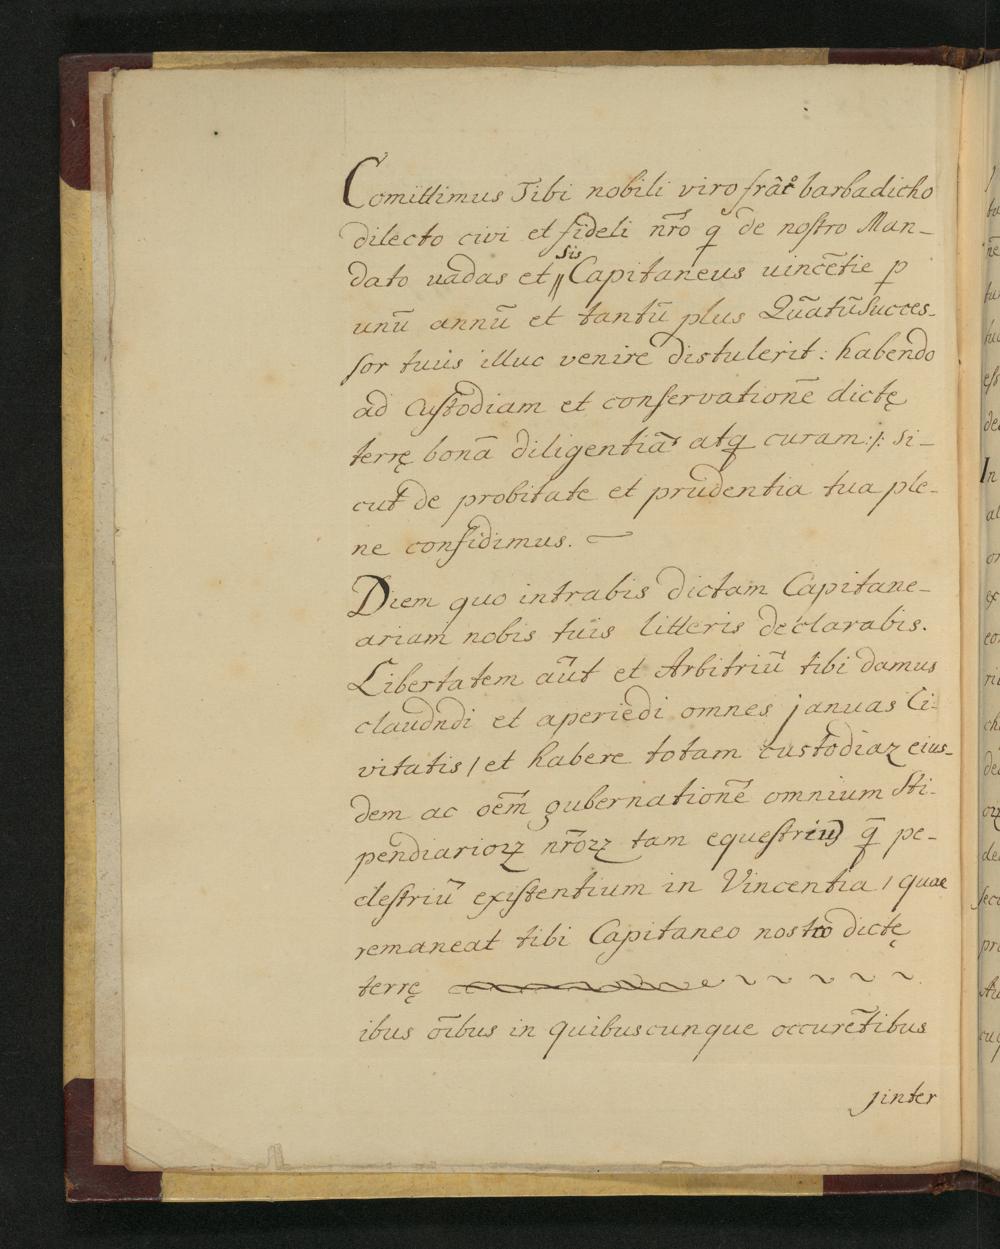 Comittimus Tibi nobili viro frãcº barbadicho
dilecto civi et fideli nr̃o q̃ de nostro Man-
dato vadas et sis Capitaneus vincẽtie p
unũ annũ et tantũ plus Quãtũ Succes-
sor tuus illuc venire distulerit: habendo
ad Custodiam et conservationẽ dictę
terrę bonã diligentiã atq curam:/: si-
cut de probitate et prudentia tua ple-
ne confidimus.
Diem quo intrabis dictam Capitane-
ariam nobis tuis litteris declarabis.
Libertatem aũt et Arbitriũ tibi damus
claudndi et aperiẽdi omnes januas Ci:
vitatis / et habere totam custodiaz eius-
dem ac oẽm gubernationẽ omnium Sti-
pendiarioꝝ nr̃oꝝ tam equestriũ q̃ pe-
destriũ existentium in Vincentia / quae
remaneat tibi Capitaneo nostro dictę
terrę
ibus õibus in quibuscunque occurẽtibus
jinter